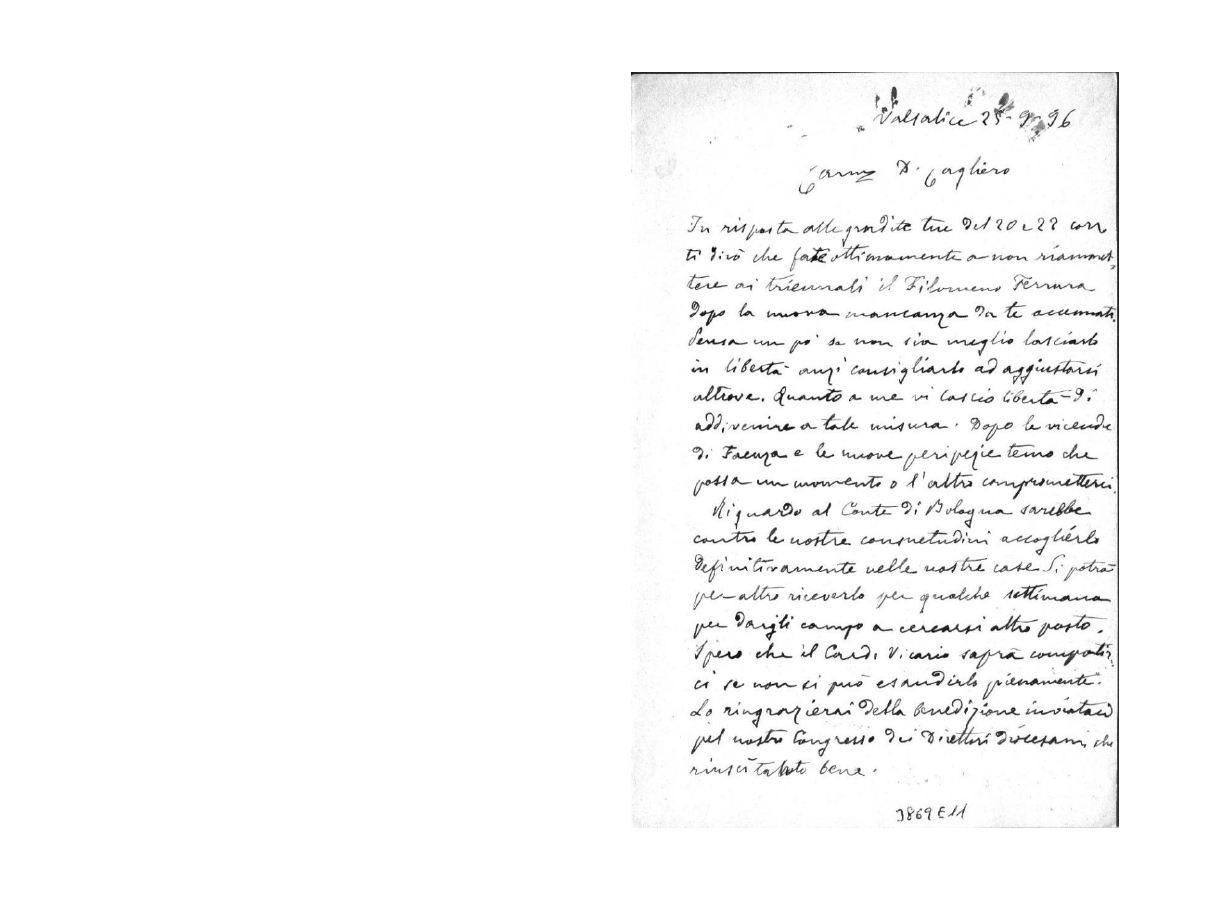 Valsalice 25-9-96
Carmo D. Cagliero
In risposta alle gradite tue del 20 e 22 corr
ti dirò che fate ottimamente a non riammet-
tere ai triennali il Filomeno Ferrara
dopo la nuova mancanza da te accennati.
Pensa un po' se non sia meglio lasciarlo
in libertà anzi consigliarlo ad aggiustarsi
altrove. Quanto a me vi lascio libertà di
addivenire a tale misura. Dopo le vicende
di Faenza e le nuove peripezie temo che
possa un momento o l'altro comprometterci.
Riguardo al Conte di Bologna sarebbe
contro le nostre consuetudini accoglierlo
definitivamente nelle nostre case. Si potrà
per altro riceverlo per qualche settimana
per dargli campo a cercarsi altro posto.
Spero che il Card. Vicario saprà compatir-
ci se non si può esaudirlo pienamente.
Lo ringrazierai della benedizione inviataci
pel nostro Congresso dei Direttori diocesani che
riuscì bene.
3869E11